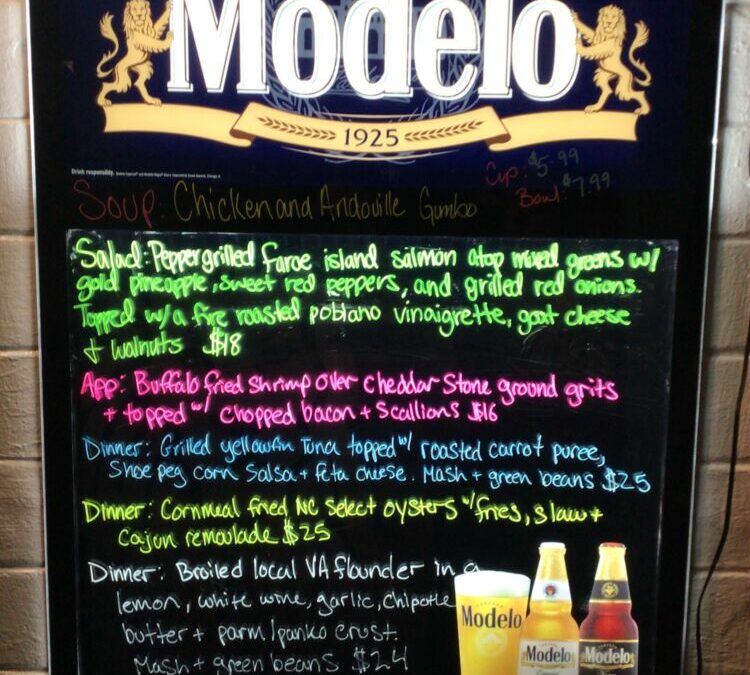 Modelo
1925
Drink responsibly.
Cup: $5.99
Bowl: $7.99
Soup: Chicken and Andouille Gumbo
Salad: Pepper grilled faroe island salmon atop mixed greens w/
gold pineapple, sweet red peppers, and grilled red onions.
Topped w/ a fire roasted poblano vinaigrette, goat cheese
+ walnuts $18
App: Buffalo fried shrimp over cheddar Stone ground grits
+ topped w/ chopped bacon + scallions $16
Dinner: Grilled yellowfin Tuna topped w/ roasted carrot puree,
Shoe peg corn Salsa + feta cheese. Mash + green beans $25
Dinner: Cornmeal fried NC Select oysters w/ fries, slaw +
Cajun remoulade $25
Dinner: Broiled local VA flounder in a
lemon, white wine, garlic, Chipotle
butter + parm/panko crust.
Mash + green beans $24
Modelo
Modelo
Modelo